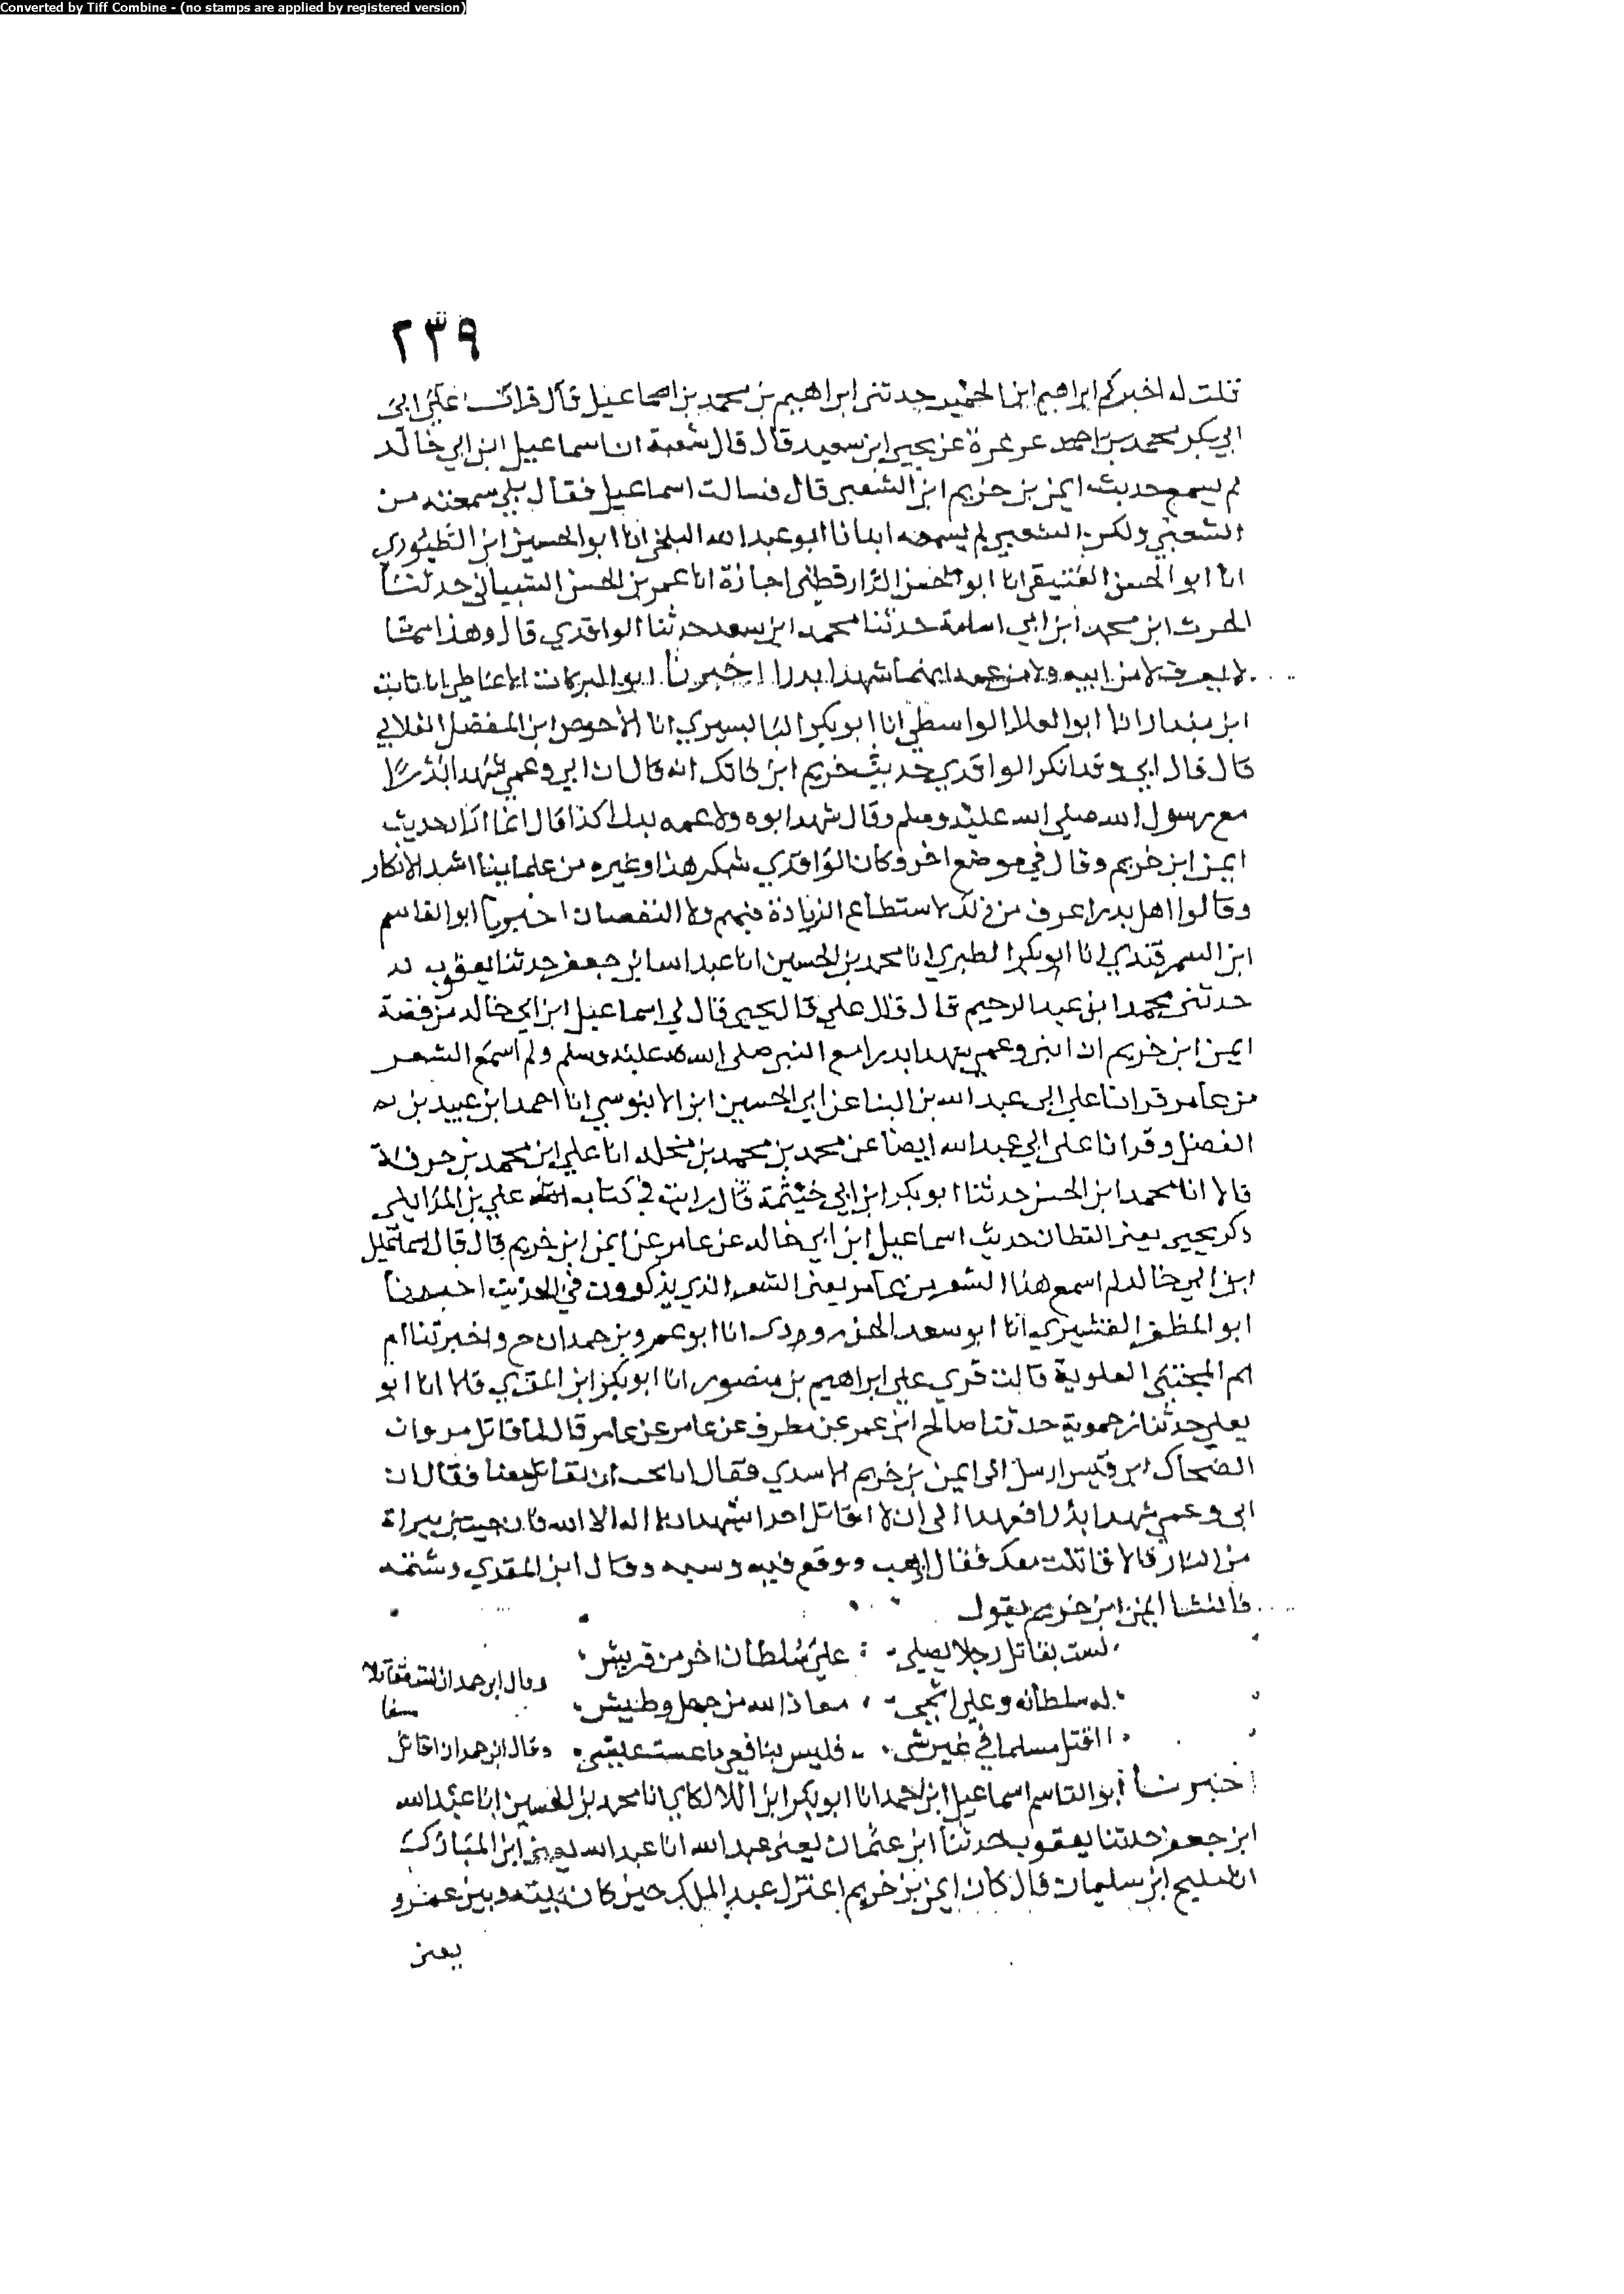 Converted by Tiff Combine - (no stamps are applied by registered version)
٢٣٩
قلت له اخبركم ابراهيم ابن الجنيد حدثني ابراهيم بن محمد بن اسماعيل قال قرات على ابي
ابي بكر محمد بن احمد عن يحيى ابن سعيد قال قال شعبة ان اسماعيل ابن ابي خالد
لم يسمع حديث ايمن بن خريم ابن الشعبي قال فسالت اسماعيل فقال بلى سمعته من
الشعبي ولكن الشعبي لم يسمعه انبانا ابو عبد الله البلخي انا ابو الحسين ابن الطيوري
انا ابو الحسن العتيقي انا ابو الحسن الدارقطني اجازة انا عمر بن الحسن الشيباني حدثنا
الحرث ابن محمد ابن ابي اسامة حدثنا محمد ابن سعد حدثنا الواقدي قال وهذا مما
لا يعرف لا من ابيه ولا من عمه انهما شهدا بدرا اخبرنا ابو البركات الانماطي انا ثابت
ابن بندار انا ابو العلا الواسطي انا ابو بكر البابسيري انا الاحوص ابن المفضل الغلابي
قال قال ابي وقد انكر الواقدي حديث خريم ابن فاتك انه قال ان ابي وعمي شهدا بدرا
مع رسول الله صلى الله عليه وسلم وقال شهد ابوه ولا عمه بدرا كذا قال انما اراد حديث
ايمن ابن خريم وقال في موضع اخر وكان الواقدي ينكر هذا وغيره من علمايينا اشد الانكار
وقالوا اهل بدر اعرف من ذلك لا ستطاع الزيادة فيهم ولا النقصان اخبرنا ابو القاسم
ابن السمرقندي انا ابو بكر الطبري انا محمد بن الحسين انا عبد الله ابن جعفر حدثنا يعقوب
حدثني محمد ابن عبد الرحيم قال قال علي قال يحيى قال لي اسماعيل ابن ابي خالد من قصة
ايمن ابن خريم ان ابي وعمي شهدا بدرا مع النبي صلى الله عليه وسلم ولم اسمع الشعر
من عامر قرانا على ابي عبد الله بن البنا عن ابي الحسين ابن الابنوسي انا احمد ابن عبيد بن
الفضل وقرانا على ابي عبد الله ايضا عن محمد بن محمد بن مخلد انا علي ابن محمد بن خزفة
قالا انا محمد ابن الحسن حدثنا ابو بكر ابن ابي خيثمة قال رايت في كتاب علي بن المدايني
ذكر يحيى يعني القطان حديث اسماعيل ابن ابي خالد عن عامر عن ايمن ابن خريم قال قال اسماعيل
ابن ابي خالد لم اسمع هذا الشعر من عامر يعني الشعر الذي يذكرون في الحديث اخبرنا
ابو المظفر القشيري انا ابو سعد الجنزرودي انا ابو عمرو بن حمدان ح واخبرتنا ام
ام المجتبى العلوية قالت قري على ابراهيم بن منصور انا ابو بكر ابن المقري قالا انا ابو
يعلى حدثنا زحموية حدثنا صالح ابن عمر عن مطرف عن عامر عن عامر قال لما قاتل مروان
الضحاك ابن قيس ارسل الى ايمن بن خريم الاسدي فقال انا نحب ان تقاتل معنا فقال ان
ابي وعمي شهدا بدرا فعهدا الي ان لا اقاتل احدا شهد ان لا اله الا الله فان جيتني ببراة
من النار قاتلت معك فقال اذهب ووقع فيه وسبه وقال ابن المقري وشتمه
فانشا ايمن ابن خريم يقول
لست بقاتل رجلا يصلي على سلطان اخر من قريش وقال ابن حمدان لست مقاتلا
له سلطانه وعلي اثمي معاذ الله من جهل وطيش
ااقتل مسلما في غير شي فليس بنافعي ما عست عيشي وقال ابن حمدان اقاتل
اخبرنا ابو القاسم اسماعيل ابن احمد انا ابو بكر ابن اللالكاي انا محمد بن الحسين انا عبد الله
ابن جعفر حدثنا يعقوب حدثنا ابن عثمان يعني عبد الله انا عبد الله يعني ابن المبارك
انا سليمان قال كان ايمن بن خريم اعتزل عبد الملك حين كان بينه وبين عمرو
يعني